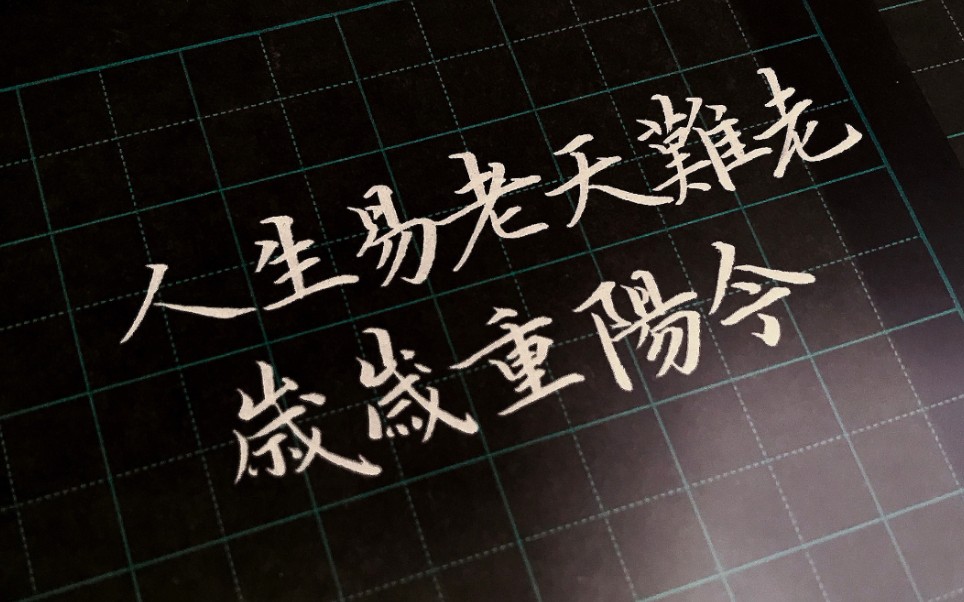 人生易老天難老
歲歲重陽今